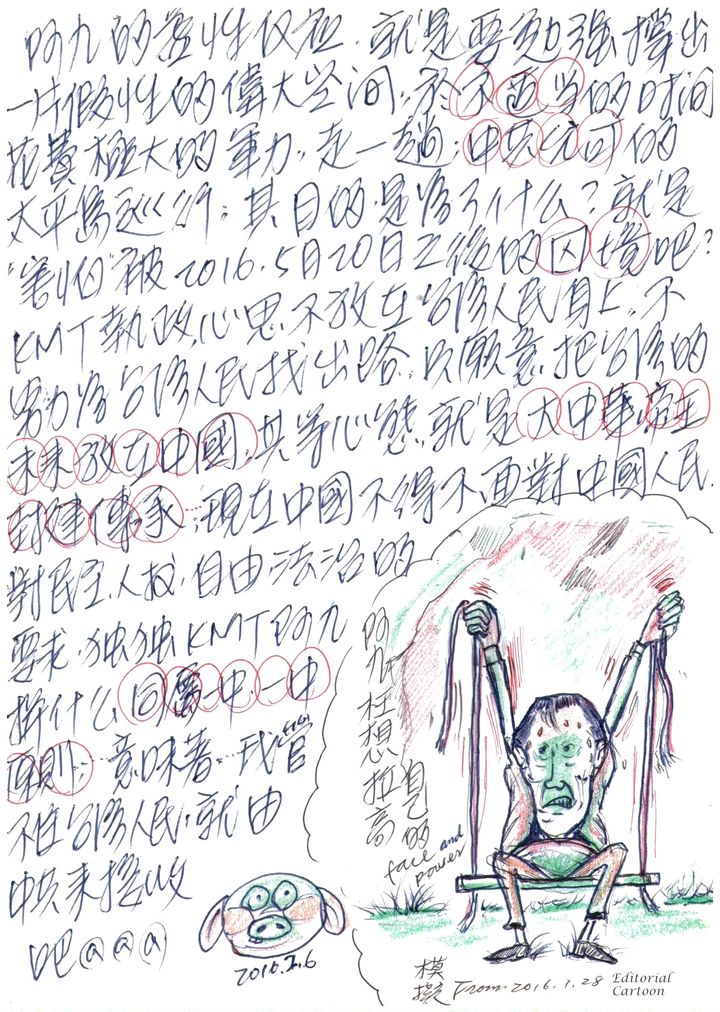 阿九的惡性仅位.就是要勉强撐出
一片假性的偉大空间,於不适当的时间
花費極大的軍力,走一趟:中共允可的
太平島巡行;其目的是為了什么?就是
"害怕"被2016.5月20日之後的囚境吧?
KMT執政,心思.不放在台湾人民身上.不
努力為台湾人民找出路.只願意把台湾的
未来放在中國,其等心態就是大中華帝王
封建傳承;現在中國不得不面對中國人民
對民主.人权.自由.法治的
要求.独独KMT阿九
辩什么同屬一中.一中
原則:意味著…我管
不住台湾人民,就由
中共来接收
吧@@@
阿九枉想拉高
自己的
face and
power
2016.2.6
模擬 From 2016.1.28
Editorial
Cartoon